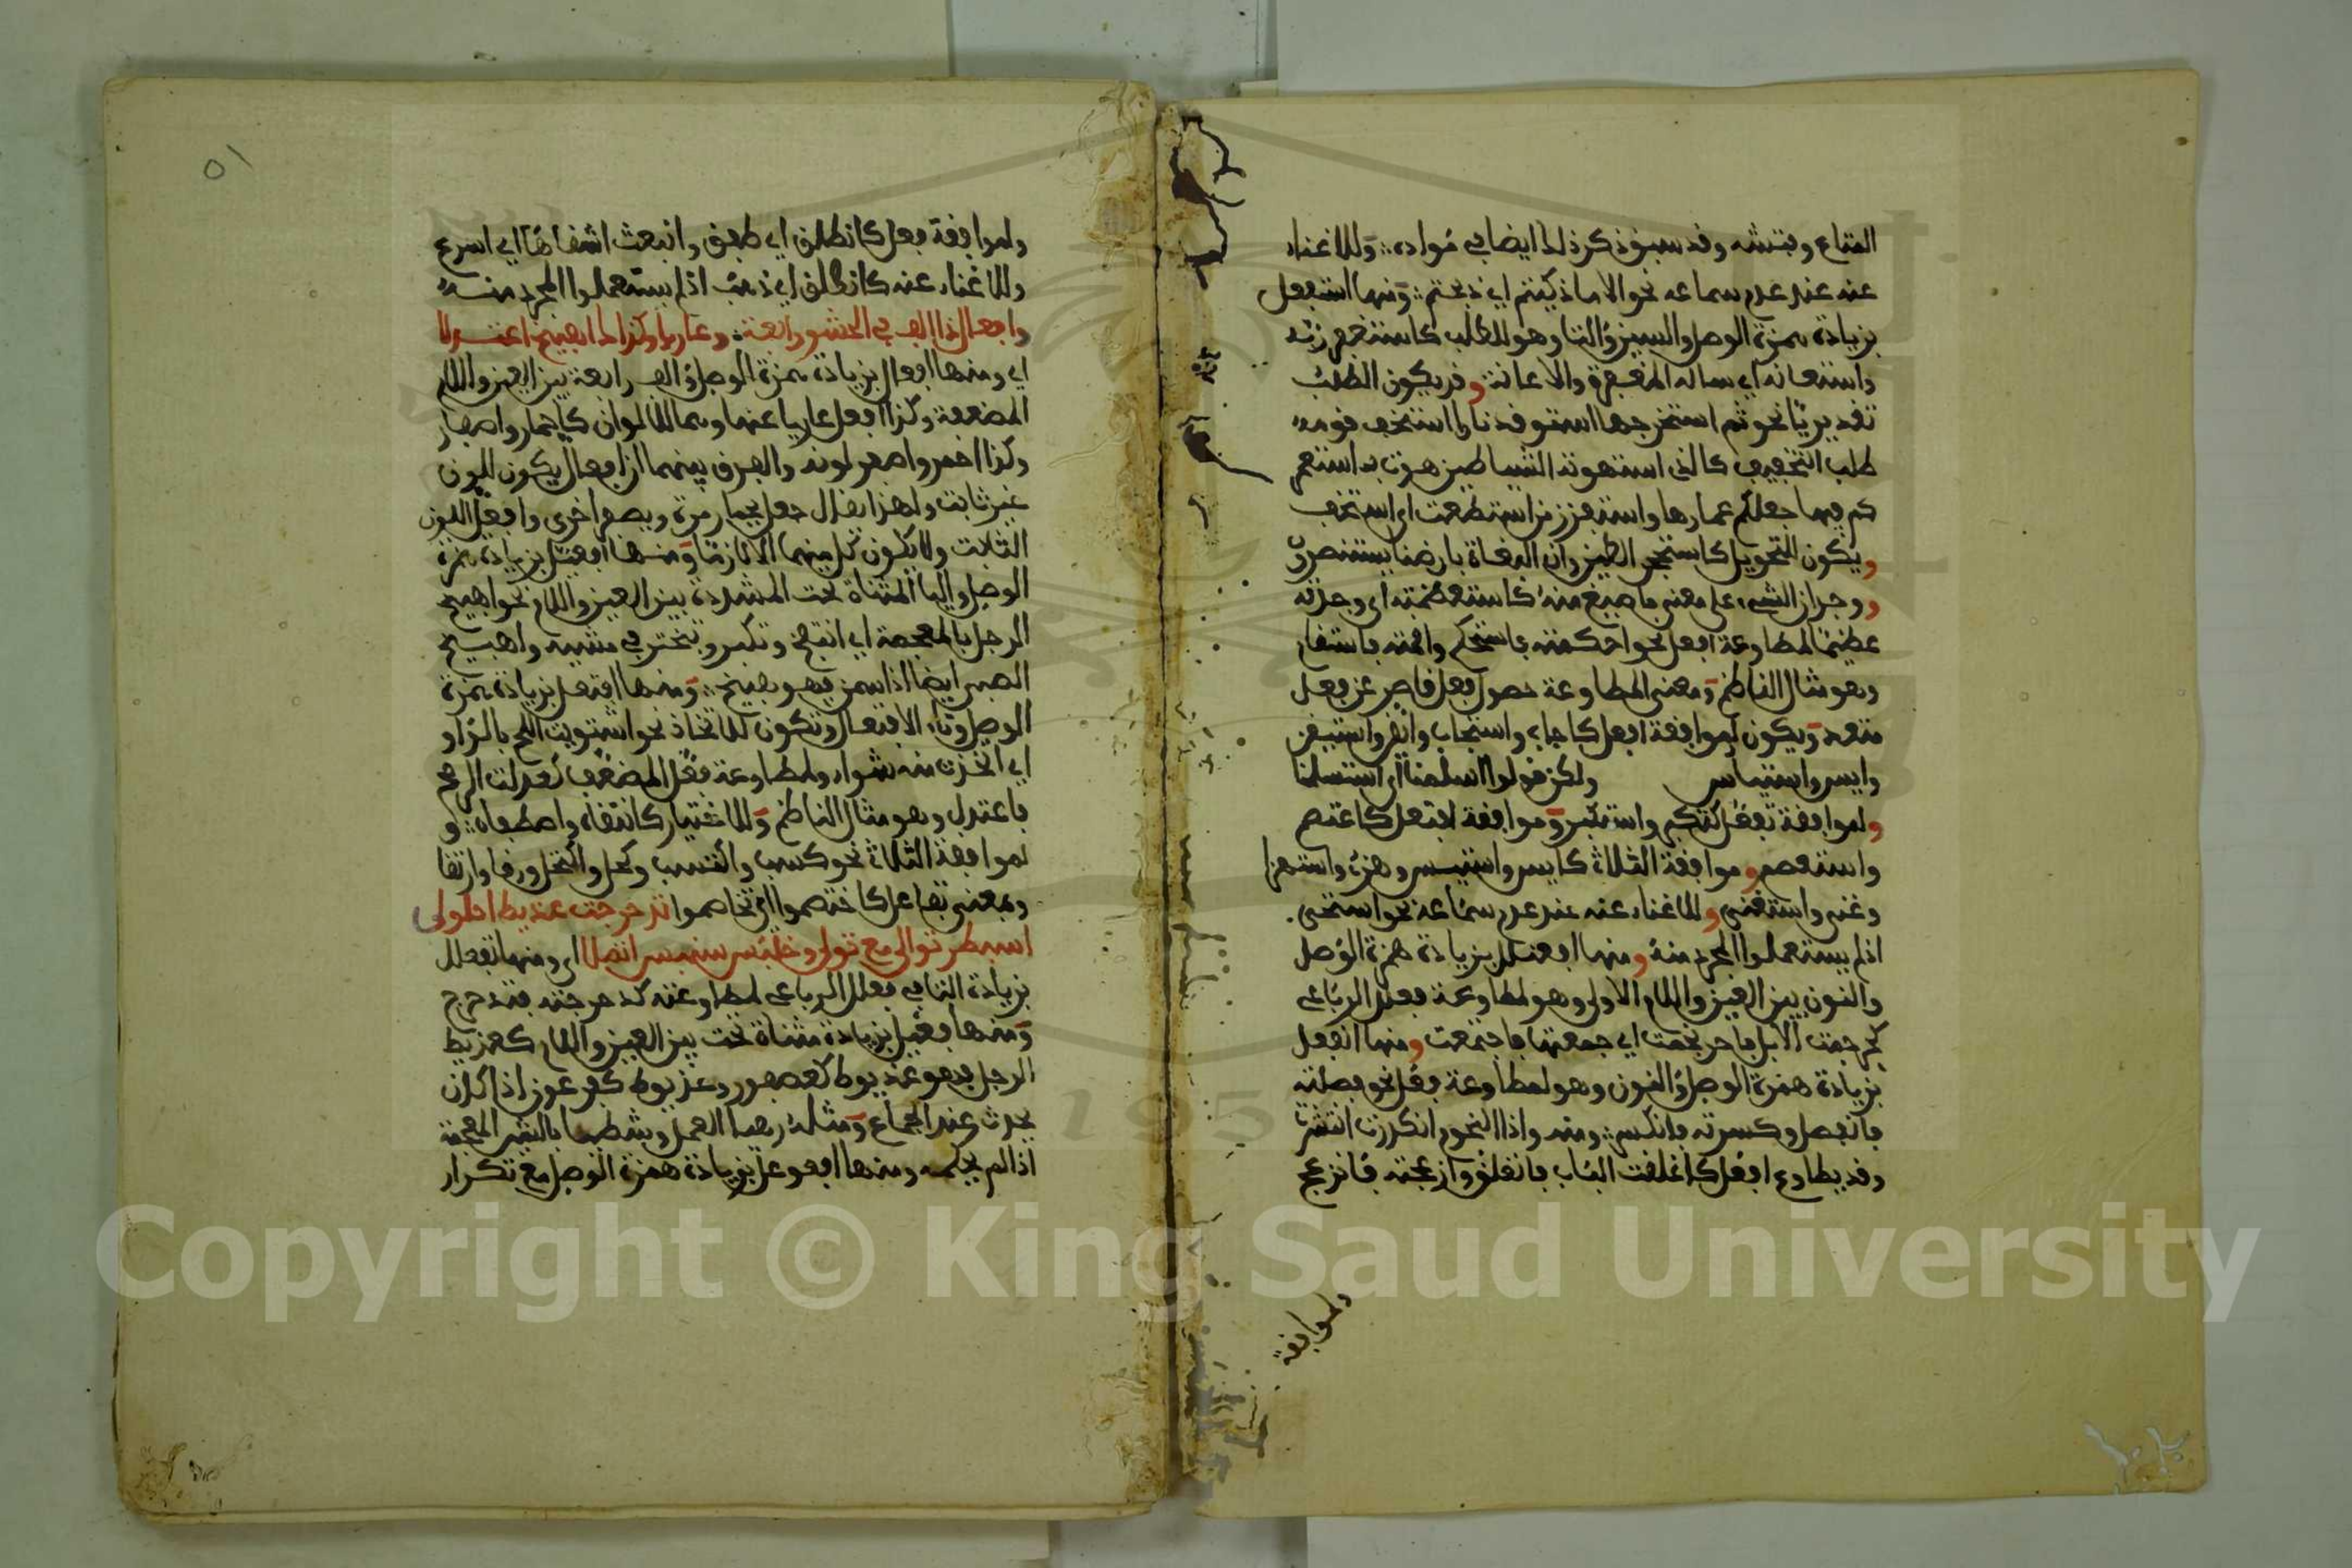 المتاع وفتشه وقد سبق ذكر ذلك ايضا في مواده وللاغناء
عنه عند عدم سماعه نحو الا ما ذكيتم اي ذبحتم ومنها استفعل
بزيادة همزة الوصل والسين والتا وهو للطلب كاستغفر ربه
واستعانه اي ساله المغفرة والاعانة وقد يكون الطلب
تقديريا نحو ثم استخرجها استوقد نارا استخف قومه
طلب التخفيف كالذي استهوته الشياطين هوت به استعمر
كم فيها جعلكم عمارها واستفزز من استطعت اي استخف
ويكون للتحويل كاستحجر الطين وان البغاة بارضنا يستنسرون
ووجدان الشيء على معنى ما صيغ منه كاستعظمته اي وجدته
عظيما لمطاوعة افعل نحو احكمته فاستحكم واقمته فاستقام
وهو مثال الناظم ومعنى المطاوعة حصول فعل قاصر عن فعل
متعد ويكون لموافقة افعل كاجاب واستجاب وايقن واستيقن
وايس واستيأس ولكن قولوا اسلمنا اي استسلمنا
ولموافقة تفعل كتكبر واستكبر وموافقة افتعل كاعتصم
واستعصم وموافقة الثلاث كايس واستيس وهزء واستهزا
وغني واستغنى وللاغناء عنه عند عدم سماعه نحو استحى
اذ لم يستعملوا المجرد منه ومنها افعنلل بزيادة همزة الوصل
والنون بين العين واللام الاولى وهو لمطاوعة فعلل الرباعي
كحرجمت الابل فاحرنجمت اي جمعتها فاجتمعت ومنها انفعل
بزيادة همزة الوصل والنون وهو لمطاوعة فعل نحو فصلته
فانفصل وكسرته فانكسر ومنه واذا النجوم انكدرت انتثرت
وقد يطاوع افعل كاغلقت الباب فانغلق وازعجته فانزعج
ولموافقة
٥١
ولموافقة فعل كانطلق اي طفق وانبعث اشقاها اي اسرع
وللاغناء عنه كانطلق اي ذهب اذ لم يستعملوا المجرد منه
وافعال ذا الف في الحشو رابعة وعاريا وكذاك اهبيخ اعتدلا
اي ومنها افعال بزيادة همزة الوصل والف رابعة بين العين واللام
المضعفة وكذا افعل عاريا عنها وهما للالوان كاحمار واصفار
وكذا احمر واصفر لونه والفرق بينهما ان افعال يكون اللون
غير ثابت ولهذا يقال جعل يحمار مرة ويصفر اخرى وافعل اللون
الثابت ولا يكون كل منهما الا لازما ومنها افعيل بزيادة همزة
الوصل واليا المثناة تحت المشددة بين العين واللام نحو اهبيخ
الرجل بالمعجمة اي انتفخ وتكبر وتبختر في مشيه واهبيخ
الصبي ايضا اذا سمن فهو هبيخ ومنها افتعل بزيادة همزة
الوصل وتاء الافتعال وتكون للاتخاذ نحو اشتويت اللحم بالزاو
اي اتخذت منه شواء ولمطاوعة فعل المضعف كعدلت الرمح
فاعتدل وهو مثال الناظم وللاختيار كانتقاه واصطفاه و
لموافقة الثلاث نحو كسب واكتسب وكحل واكتحل ورقا وارتقا
وبمعنى تفاعل كاختصموا اي تخاصموا تدحرجت عذيط احلولى
اسبطر توالى مع تولى وخلبس سنبس اتصلا اي ومنها تفعلل
بزيادة التا في فعلل الرباعي لمطاوعته كدحرجته فتدحرج
ومنها فعيل بزيادة مثناة تحت بين العين واللام كعذيط
الرجل فهو عذيوط كعصفور وعذيوط كفرعون اذا كان
يحدث عند الجماع ومثله رهيا العمل وبشطها بالشين المعجمة
اذا لم يحكمه ومنها افعوعل بزيادة همزة الوصل مع تكرار
Copyright © King Saud University
195